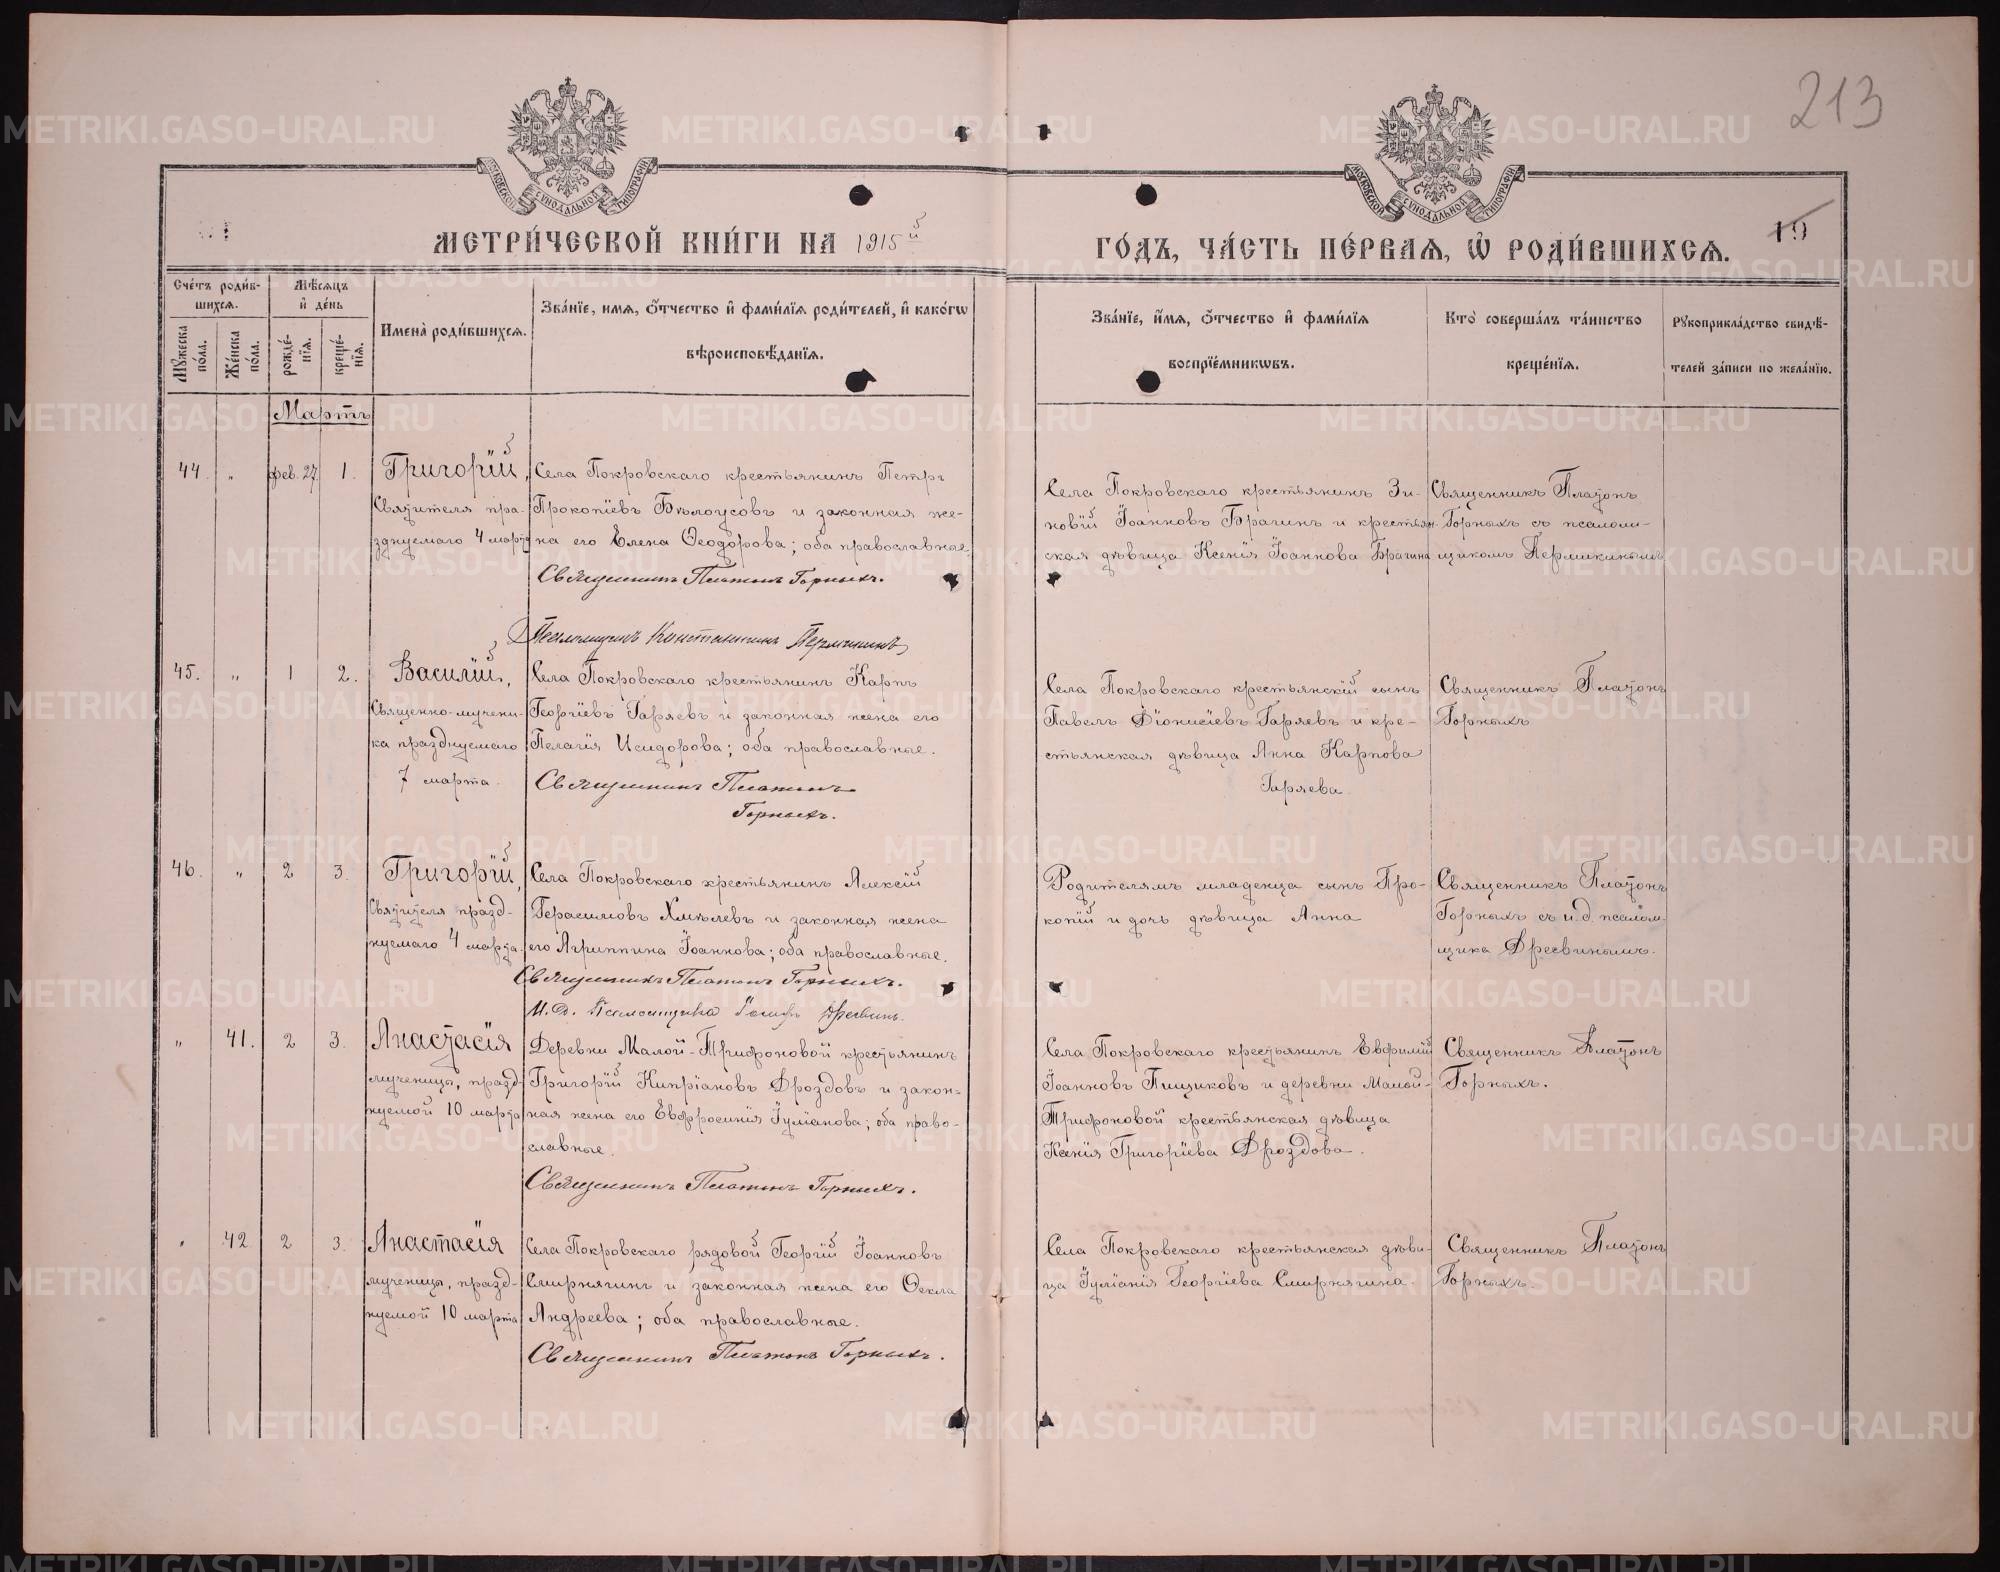 213
19
МОСКОВСКОЙ СУНОДАЛЬНОЙ ТИПОГРАФІИ
МОСКОВСКОЙ СУНОДАЛЬНОЙ ТИПОГРАФІИ
МЕТРИ́ЧЕСКОЙ КНИ́ГИ НА 1915й
ГО́ДЪ, ЧА́СТЬ ПЕ́РВАѦ, Ѡ РОДИ́ВШИХСѦ.
Сче́тъ роди́в-
шихсѧ.
Мꙋ́жеска по́ла.
Же́нска по́ла.
Мѣ́сѧцъ
и де́нь
рожде́нїѧ.
креще́нїѧ.
Имена̀ роди́вшихсѧ.
Зва́нїе, имѧ, о́тчество и фами́лїѧ роди́телей, и како́гѡ
вѣроисповѣ́данїѧ.
Зва́нїе, и́мѧ, о́тчество и фами́лїѧ
воспрїе́мникѡвъ.
Кто̀ соверша́лъ та́инство
креще́нїѧ.
Рꙋкоприкла́дство свидѣ́-
телей за́писи по жела́нїю.
Мартъ
44. " фев. 27. 1. Григорій,
Святителя пра-
зднуемаго 4 марта
Села Покровскаго крестьянинъ Петръ
Прокопіевъ Бѣлоусовъ и законная же-
на его Елена Ѳеодорова; оба православные.
Священникъ Платонъ Горныхъ.
Псаломщикъ Константинъ Пермикинъ
Села Покровскаго крестьянинъ Зи-
новій Іоанновъ Брагинъ и крестьян-
ская дѣвица Ксенія Іоаннова Брагина
Священникъ Платонъ
Горныхъ съ псалом-
щикомъ Пермикинымъ
45. " 1 2. Василій,
Священно-мучени-
ка празднуемаго
7 марта.
Села Покровскаго крестьянинъ Карпъ
Георгіевъ Гаряевъ и законная жена его
Пелагія Исидорова; оба православные.
Священникъ Платонъ
Горныхъ.
Села Покровскаго крестьянскій сынъ
Павелъ Діонисіевъ Гаряевъ и кре-
стьянская дѣвица Анна Карпова
Гаряева
Священникъ Платонъ
Горныхъ
46. " 2 3. Григорій,
Святителя празд-
нуемаго 4 марта.
Села Покровскаго крестьянинъ Алексій
Герасимовъ Хмѣлевъ и законная жена
его Агриппина Іоаннова; оба православные.
Священникъ Платонъ Горныхъ.
И. д. Псаломщика Іосифъ Дрягинъ.
Родителямъ младенца сынъ Про-
копій и дочь дѣвица Анна
Священникъ Платонъ
Горныхъ съ и. д. псалом-
щика
" 41. 2 3. Анастасія
мученицы, празд-
нуемой 10 марта
Деревни Малой-Трифоновой крестьянинъ
Григорій Кипріановъ Дроздовъ и закон-
ная жена его Евфросинія Іуліанова; оба право-
славные.
Священникъ Платонъ Горныхъ.
Села Покровскаго крестьянинъ Евфимій
Іоанновъ Пищиковъ и деревни Малой-
Трифоновой крестьянская дѣвица
Ксенія Григоріева Дроздова.
Священникъ Платонъ
Горныхъ.
" 42 2 3. Анастасія
мученицы, празд-
нуемой 10 марта
Села Покровскаго рядовой Георгій Іоанновъ
Смирнягинъ и законная жена его Ѳекла
Андреева; оба православные.
Священникъ Платонъ Горныхъ.
Села Покровскаго крестьянская дѣви-
ца Іуліанія Георгіева Смирнягина.
Священникъ Платонъ
Горныхъ
METRIKI.GASO-URAL.RU